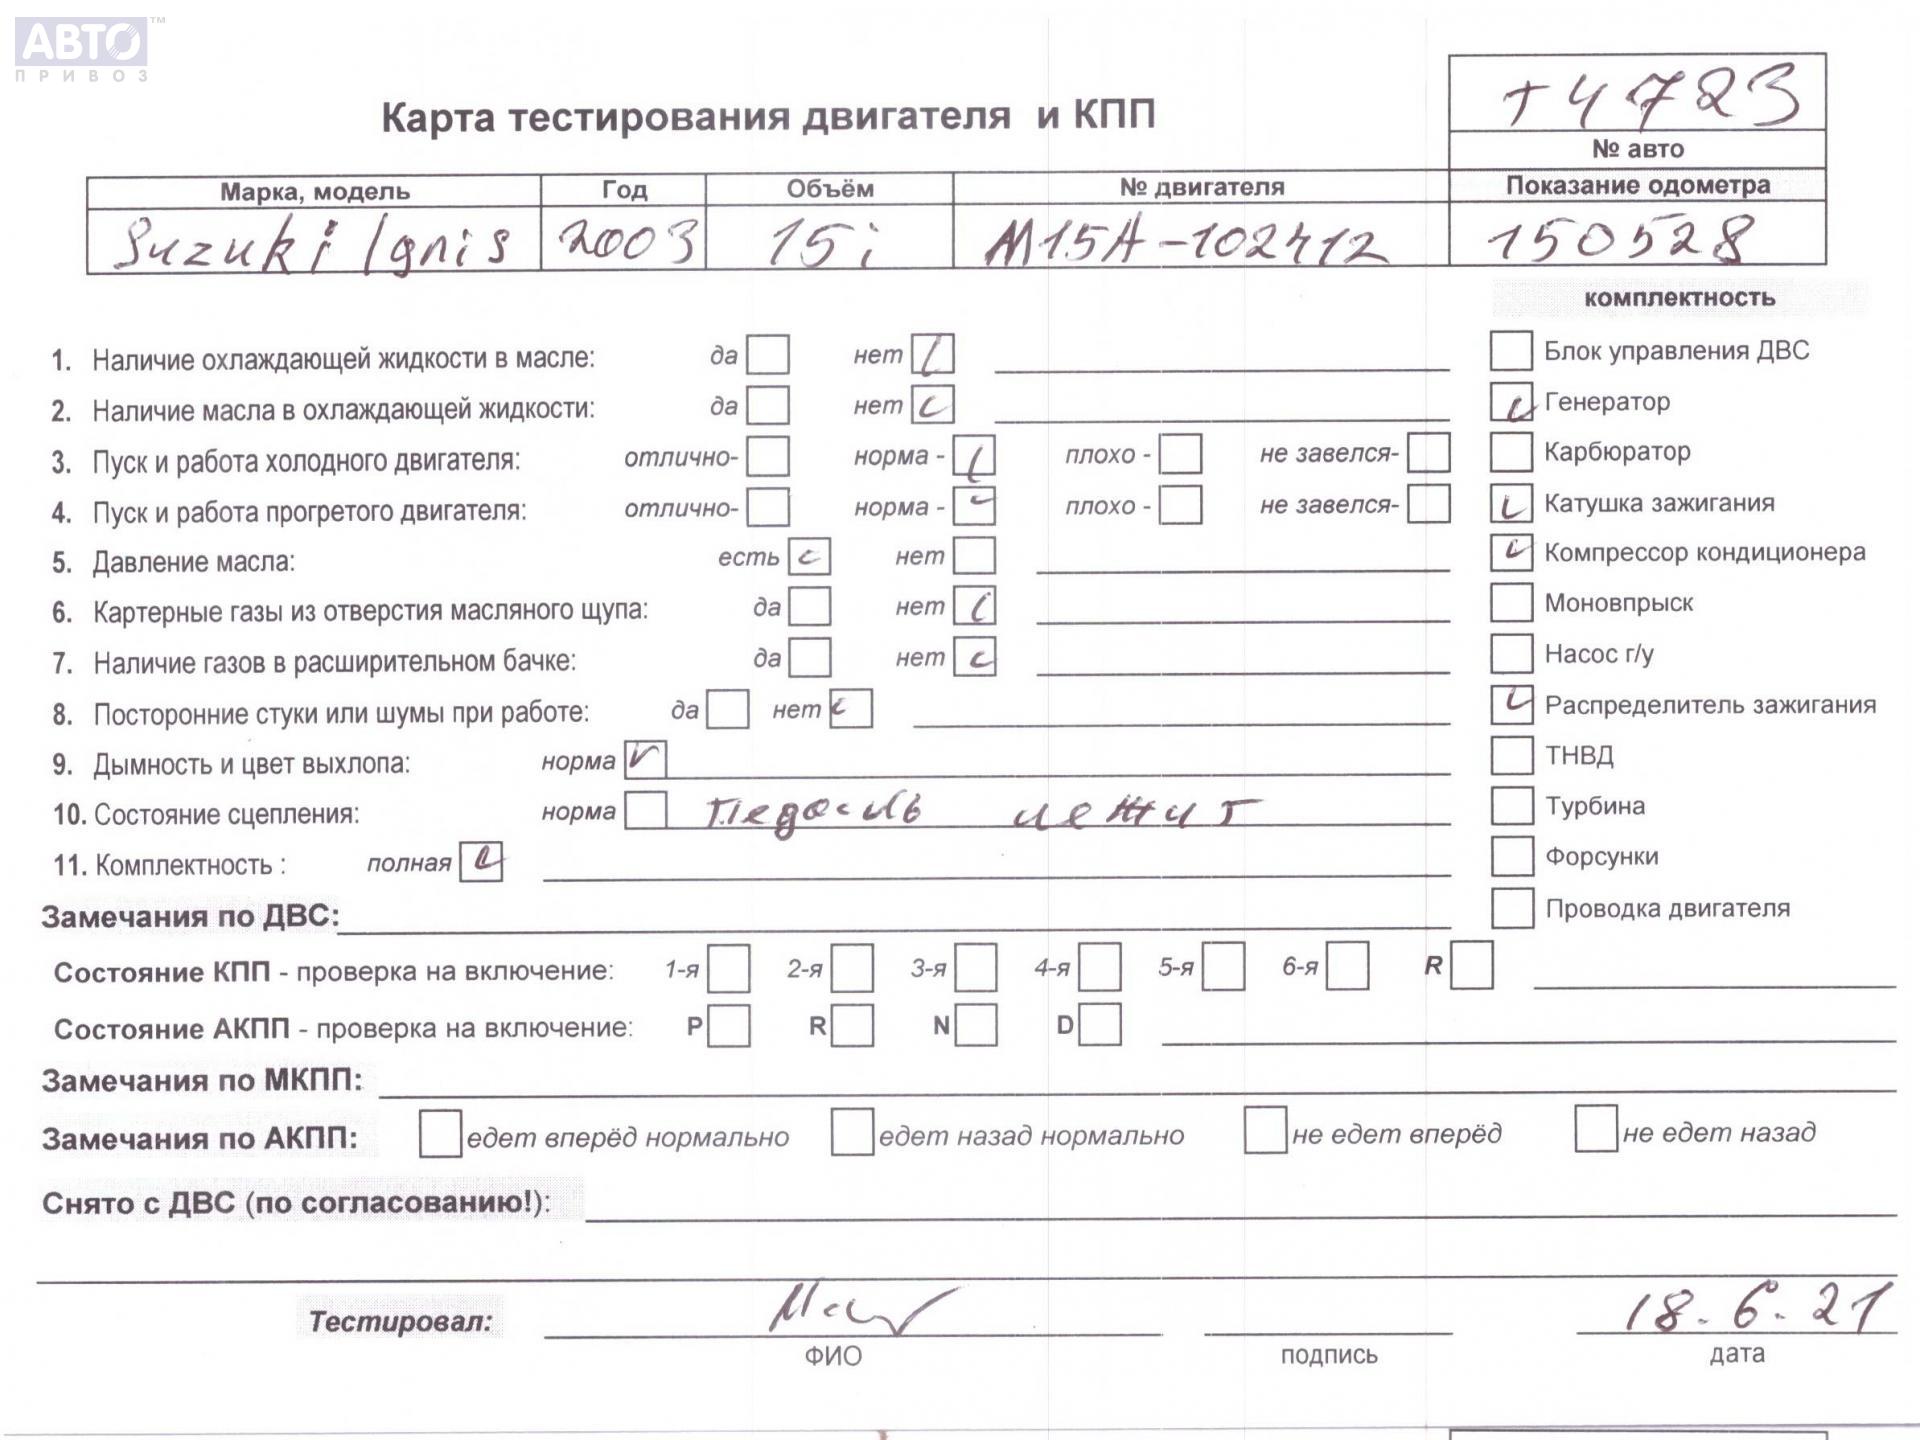 АВТО™
ПРИВОЗ
т4723
Карта тестирования двигателя и КПП
№ авто
Марка, модель Год Объём № двигателя Показание одометра
Suzuki Ignis 2003 15i M15A-102412 150528
комплектность
1. Наличие охлаждающей жидкости в масле: да нет Блок управления ДВС
2. Наличие масла в охлаждающей жидкости: да нет Генератор
3. Пуск и работа холодного двигателя: отлично- норма - плохо - не завелся- Карбюратор
4. Пуск и работа прогретого двигателя: отлично- норма - плохо - не завелся- Катушка зажигания
5. Давление масла: есть нет Компрессор кондиционера
6. Картерные газы из отверстия масляного щупа: да нет Моновпрыск
7. Наличие газов в расширительном бачке: да нет Насос г/у
8. Посторонние стуки или шумы при работе: да нет Распределитель зажигания
9. Дымность и цвет выхлопа: норма ТНВД
10. Состояние сцепления: норма Педаль лежит Турбина
11. Комплектность : полная Форсунки
Замечания по ДВС: Проводка двигателя
Состояние КПП - проверка на включение: 1-я 2-я 3-я 4-я 5-я 6-я R
Состояние АКПП - проверка на включение: P R N D
Замечания по МКПП:
Замечания по АКПП: едет вперёд нормально едет назад нормально не едет вперёд не едет назад
Снято с ДВС (по согласованию!):
Тестировал: 18.6.21
ФИО подпись дата